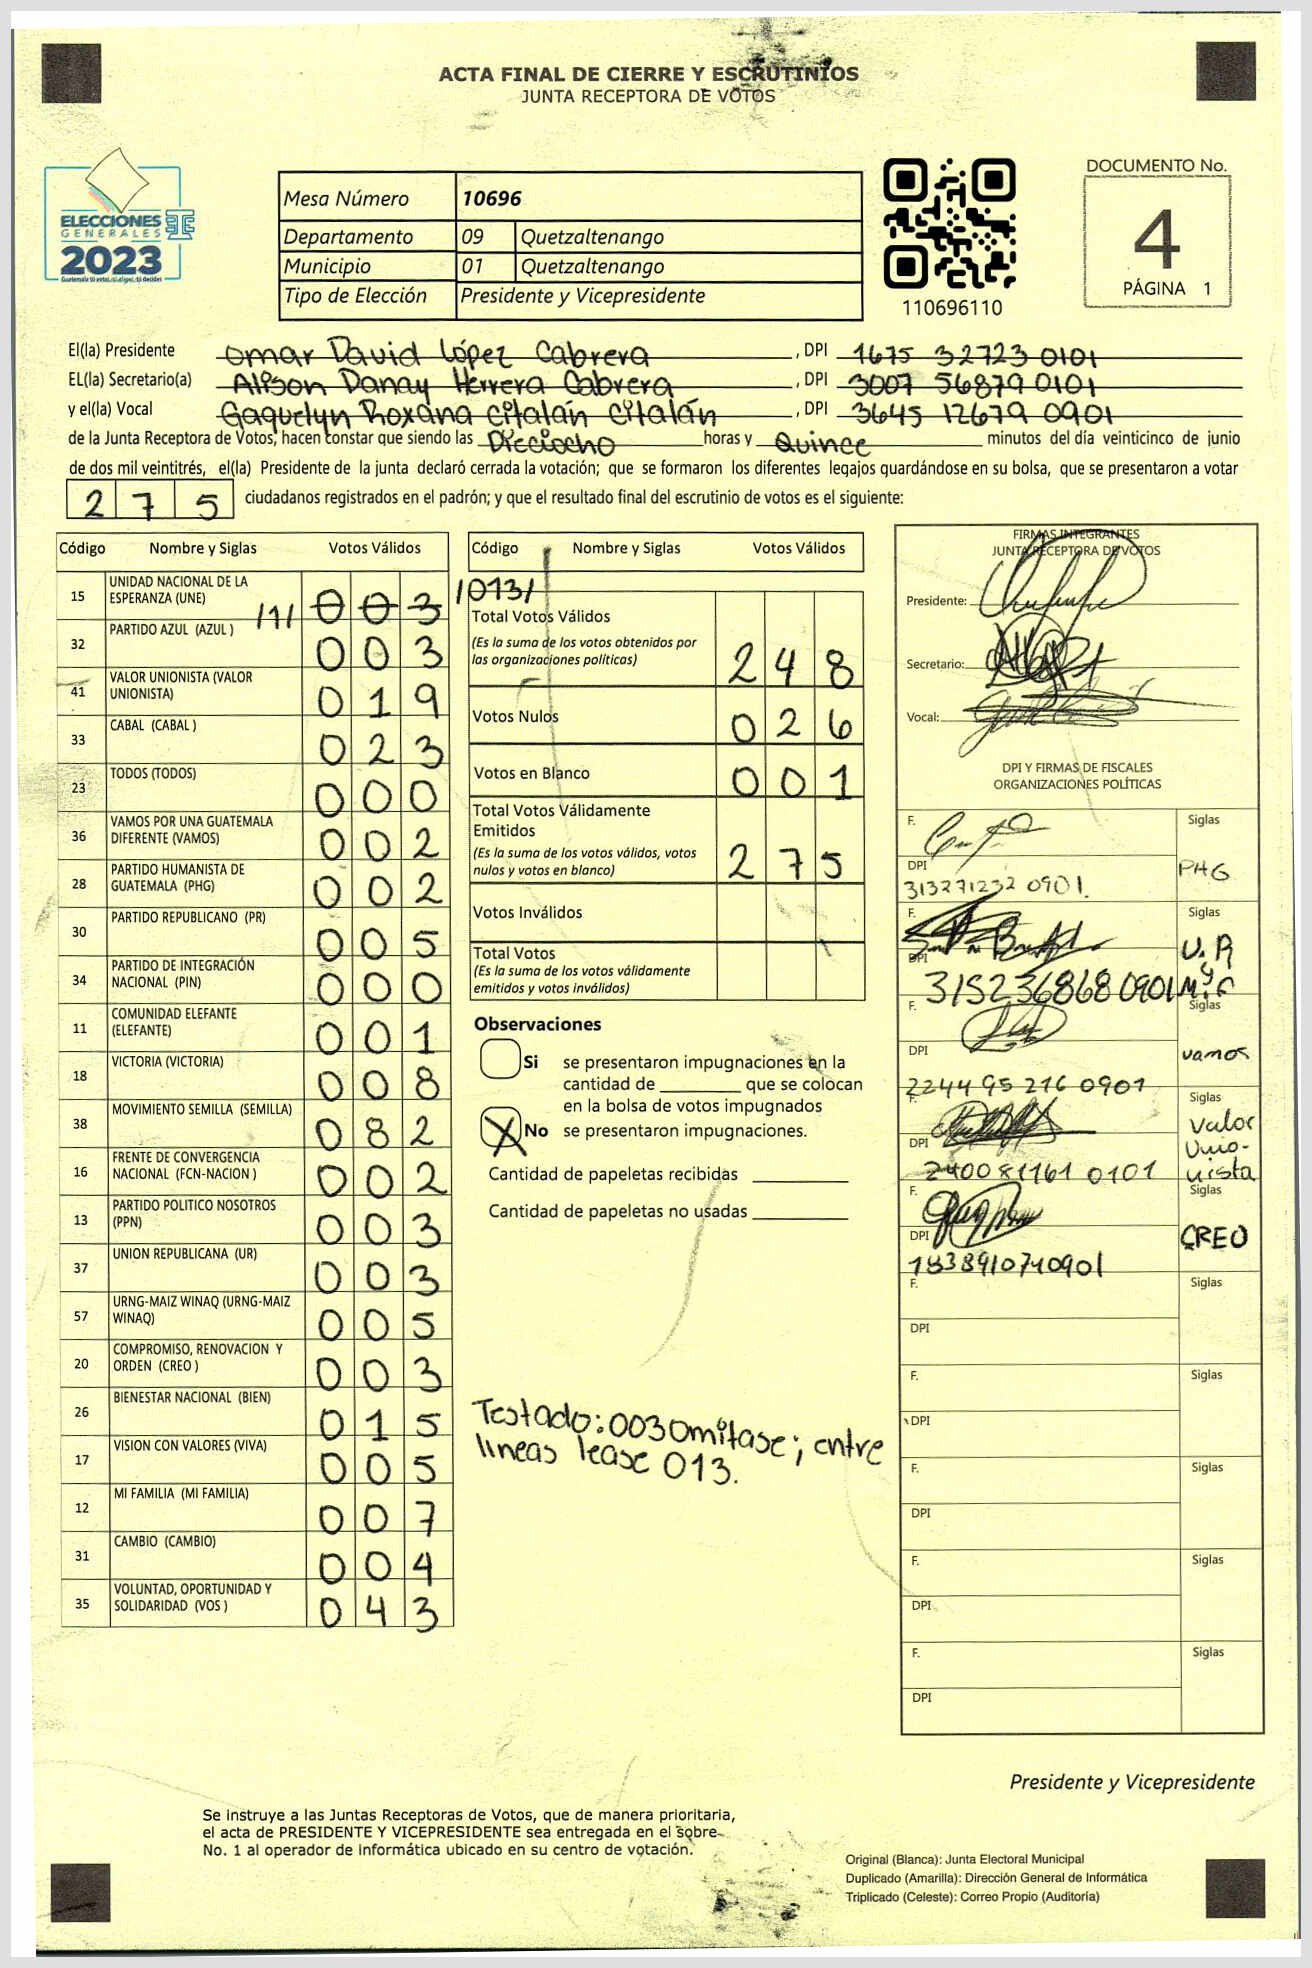 ACTA FINAL DE CIERRE Y ESCRUTINIOS
JUNTA RECEPTORA DE VOTOS
ELECCIONES
GENERALES
2023
Mesa Número 10696
Departamento 09 Quetzaltenango
Municipio 01 Quetzaltenango
Tipo de Elección Presidente y Vicepresidente
110696110
DOCUMENTO No.
4
PÁGINA 1
El(la) Presidente Omar David López Cabrera , DPI 1675 32723 0101
EL(la) Secretario(a) Alison Danay Herrera Cabrera , DPI 3007 56879 0101
y el(la) Vocal Gaquelyn Roxana Citalán Citalán , DPI 3645 12679 0901
de la Junta Receptora de Votos, hacen constar que siendo las Dieciocho horas y Quince minutos del día veinticinco de junio
de dos mil veintitrés, el(la) Presidente de la junta declaró cerrada la votación; que se formaron los diferentes legajos guardándose en su bolsa, que se presentaron a votar
275 ciudadanos registrados en el padrón; y que el resultado final del escrutinio de votos es el siguiente:
Código Nombre y Siglas Votos Válidos
15 UNIDAD NACIONAL DE LA
ESPERANZA (UNE) /1/ 003 /013/
32 PARTIDO AZUL (AZUL ) 003
41 VALOR UNIONISTA (VALOR
UNIONISTA) 019
33 CABAL (CABAL ) 023
23 TODOS (TODOS) 000
36 VAMOS POR UNA GUATEMALA
DIFERENTE (VAMOS) 002
28 PARTIDO HUMANISTA DE
GUATEMALA (PHG) 002
30 PARTIDO REPUBLICANO (PR) 005
34 PARTIDO DE INTEGRACIÓN
NACIONAL (PIN) 000
11 COMUNIDAD ELEFANTE
(ELEFANTE) 001
18 VICTORIA (VICTORIA) 008
38 MOVIMIENTO SEMILLA (SEMILLA) 082
16 FRENTE DE CONVERGENCIA
NACIONAL (FCN-NACION ) 002
13 PARTIDO POLITICO NOSOTROS
(PPN) 003
37 UNION REPUBLICANA (UR) 003
57 URNG-MAIZ WINAQ (URNG-MAIZ
WINAQ) 005
20 COMPROMISO, RENOVACION Y
ORDEN (CREO ) 003
26 BIENESTAR NACIONAL (BIEN) 015
17 VISION CON VALORES (VIVA) 005
12 MI FAMILIA (MI FAMILIA) 007
31 CAMBIO (CAMBIO) 004
35 VOLUNTAD, OPORTUNIDAD Y
SOLIDARIDAD (VOS ) 043
Código Nombre y Siglas Votos Válidos
Total Votos Válidos
(Es la suma de los votos obtenidos por
las organizaciones políticas) 248
Votos Nulos 026
Votos en Blanco 001
Total Votos Válidamente
Emitidos
(Es la suma de los votos válidos, votos
nulos y votos en blanco) 275
Votos Inválidos
Total Votos
(Es la suma de los votos válidamente
emitidos y votos inválidos)
Observaciones
Si se presentaron impugnaciones en la
cantidad de ________ que se colocan
en la bolsa de votos impugnados
X No se presentaron impugnaciones.
Cantidad de papeletas recibidas ________
Cantidad de papeletas no usadas ________
Testado: 003 Omitase; entre
lineas lease 013.
FIRMAS INTEGRANTES
JUNTA RECEPTORA DE VOTOS
Presidente:
Secretario:
Vocal:
DPI Y FIRMAS DE FISCALES
ORGANIZACIONES POLÍTICAS
F. Siglas
DPI PHG
313271232 0901.
F. Siglas
DPI U.R
315236868 0901 y M.F
F. Siglas
DPI vamos
2244 95 216 0901
F. Siglas
DPI Valor
Unio-
240081161 0101 nista
F. Siglas
DPI CREO
1838910740901
F. Siglas
DPI
F. Siglas
DPI
F. Siglas
DPI
F. Siglas
DPI
F. Siglas
DPI
Presidente y Vicepresidente
Se instruye a las Juntas Receptoras de Votos, que de manera prioritaria,
el acta de PRESIDENTE Y VICEPRESIDENTE sea entregada en el sobre
No. 1 al operador de informática ubicado en su centro de votación.
Original (Blanca): Junta Electoral Municipal
Duplicado (Amarilla): Dirección General de Informática
Triplicado (Celeste): Correo Propio (Auditoría)